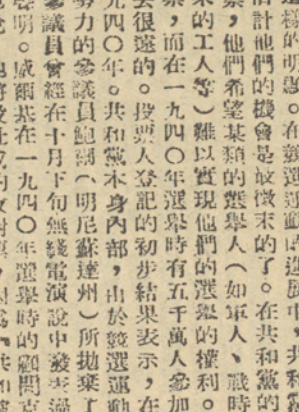 這樣的明顯。在競選運動的進展中共和黨
估計他們的機會是最微末的了。在共和黨的
黨，他們希望某類的選舉人（如軍人、戰時
來的工人等）難以實現他們的選舉的權利。
票，而在一九四〇年選舉時有五千萬人參加
去很遠的。投票人登記的初步結果表示，在
九四〇年。共和黨本身內部，由於競選運動
努力的參議員鮑爾（明尼蘇達州）所拋棄了
參議員曾經在十月下旬無綫電演說中發表過
聲明。威爾基在一九四〇年選舉時的顧問